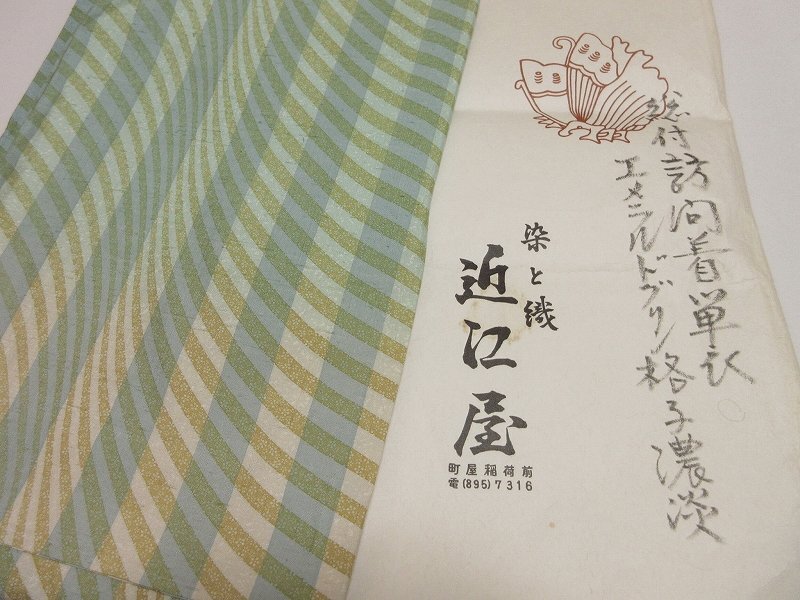 総付訪問着単衣
エメラルドグリン格子濃淡
染と織
近江屋
町屋稲荷前
電(895)7316